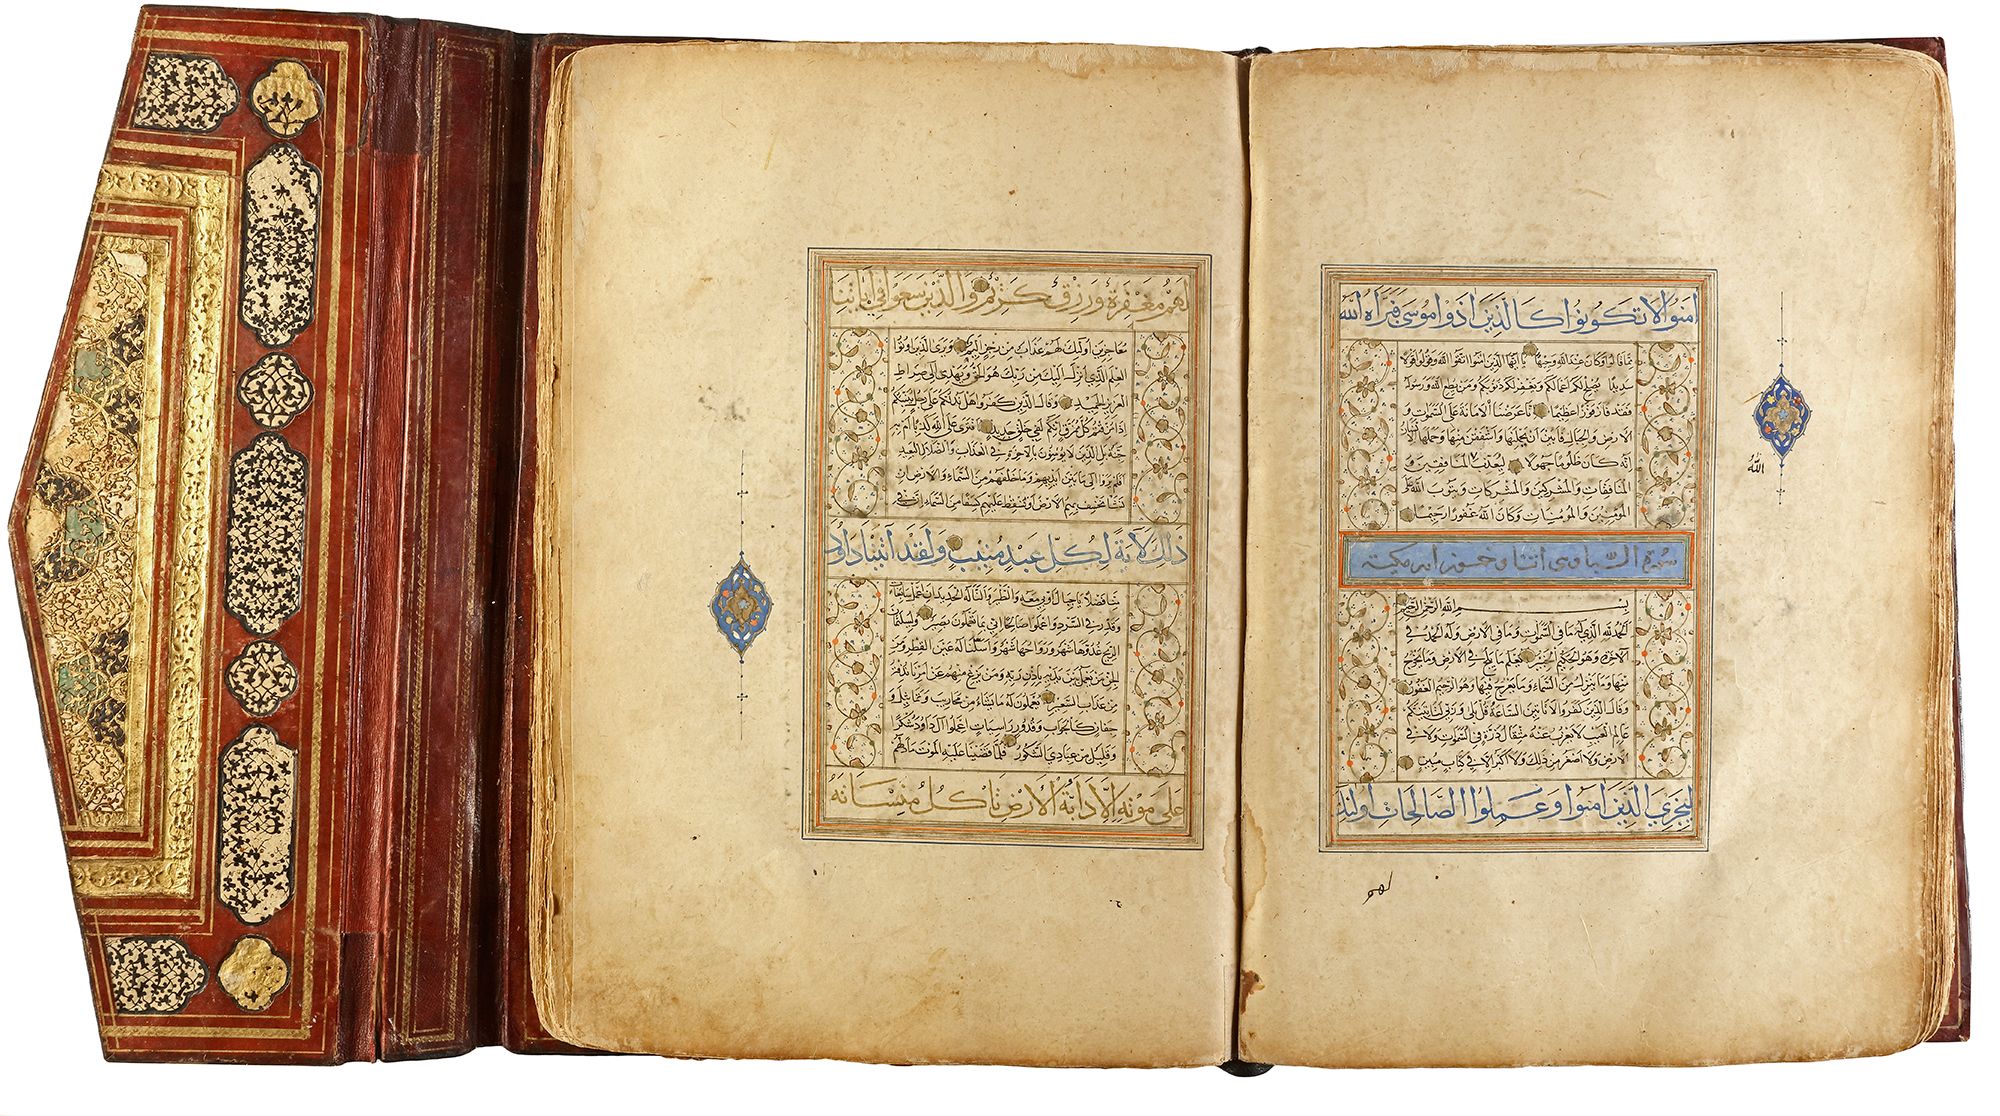 امنوا لا تكونوا كالذين اذوا موسى فبراه الله
مما قالوا وكان عند الله وجيها يا ايها الذين امنوا اتقوا الله وقولوا قولا
سديدا يصلح لكم اعمالكم ويغفر لكم ذنوبكم ومن يطع الله ورسوله
فقد فاز فوزا عظيما انا عرضنا الامانة على السموات و
الارض والجبال فابين ان يحملنها واشفقن منها وحملها الانسان
الله
انه كان ظلوما جهولا ليعذب المنافقين و
المنافقات والمشركين والمشركات ويتوب الله على
المؤمنين والمؤمنات وكان الله غفورا رحيما
سورة السبا وهى اثنا وخمسون ايه مكية
بسم الله الرحمن الرحيم
الحمد لله الذي له ما في السموات وما في الارض وله الحمد في
الاخرة وهو الحكيم الخبير يعلم ما يلج في الارض وما يخرج
منها وما ينزل من السماء وما يعرج فيها وهو الرحيم الغفور
وقال الذين كفروا لا تاتينا الساعة قل بلى وربي لتاتينكم
عالم الغيب لا يعزب عنه مثقال ذرة في السموات ولا في
الارض ولا اصغر من ذلك ولا اكبر الا في كتاب مبين
ليجزي الذين امنوا وعملوا الصالحات اولئك
لهم
لهم مغفرة ورزق كريم والذين سعوا في اياتنا
معاجزين اولئك لهم عذاب من رجز اليم ويرى الذين اوتوا
العلم الذي انزل اليك من ربك هو الحق ويهدي الى صراط
العزيز الحميد وقال الذين كفروا هل ندلكم على رجل ينبئكم
اذا مزقتم كل ممزق انكم لفي خلق جديد افترى على الله كذبا ام به
جنة بل الذين لا يؤمنون بالاخرة في العذاب والضلال البعيد
افلم يروا الى ما بين ايديهم وما خلفهم من السماء والارض ان
نشا نخسف بهم الارض او نسقط عليهم كسفا من السماء ان في
ذلك لاية لكل عبد منيب ولقد اتينا داود
منا فضلا يا جبال اوبي معه والطير والنا له الحديد ان اعمل سابغات
وقدر في السرد واعملوا صالحا اني بما تعملون بصير ولسليمان
الريح غدوها شهر ورواحها شهر واسلنا له عين القطر ومن
الجن من يعمل بين يديه باذن ربه ومن يزغ منهم عن امرنا نذقه
من عذاب السعير يعملون له ما يشاء من محاريب وتماثيل و
جفان كالجواب وقدور راسيات اعملوا ال داود شكرا
وقليل من عبادي الشكور فلما قضينا عليه الموت ما دلهم
على موته الا دابة الارض تاكل منساته